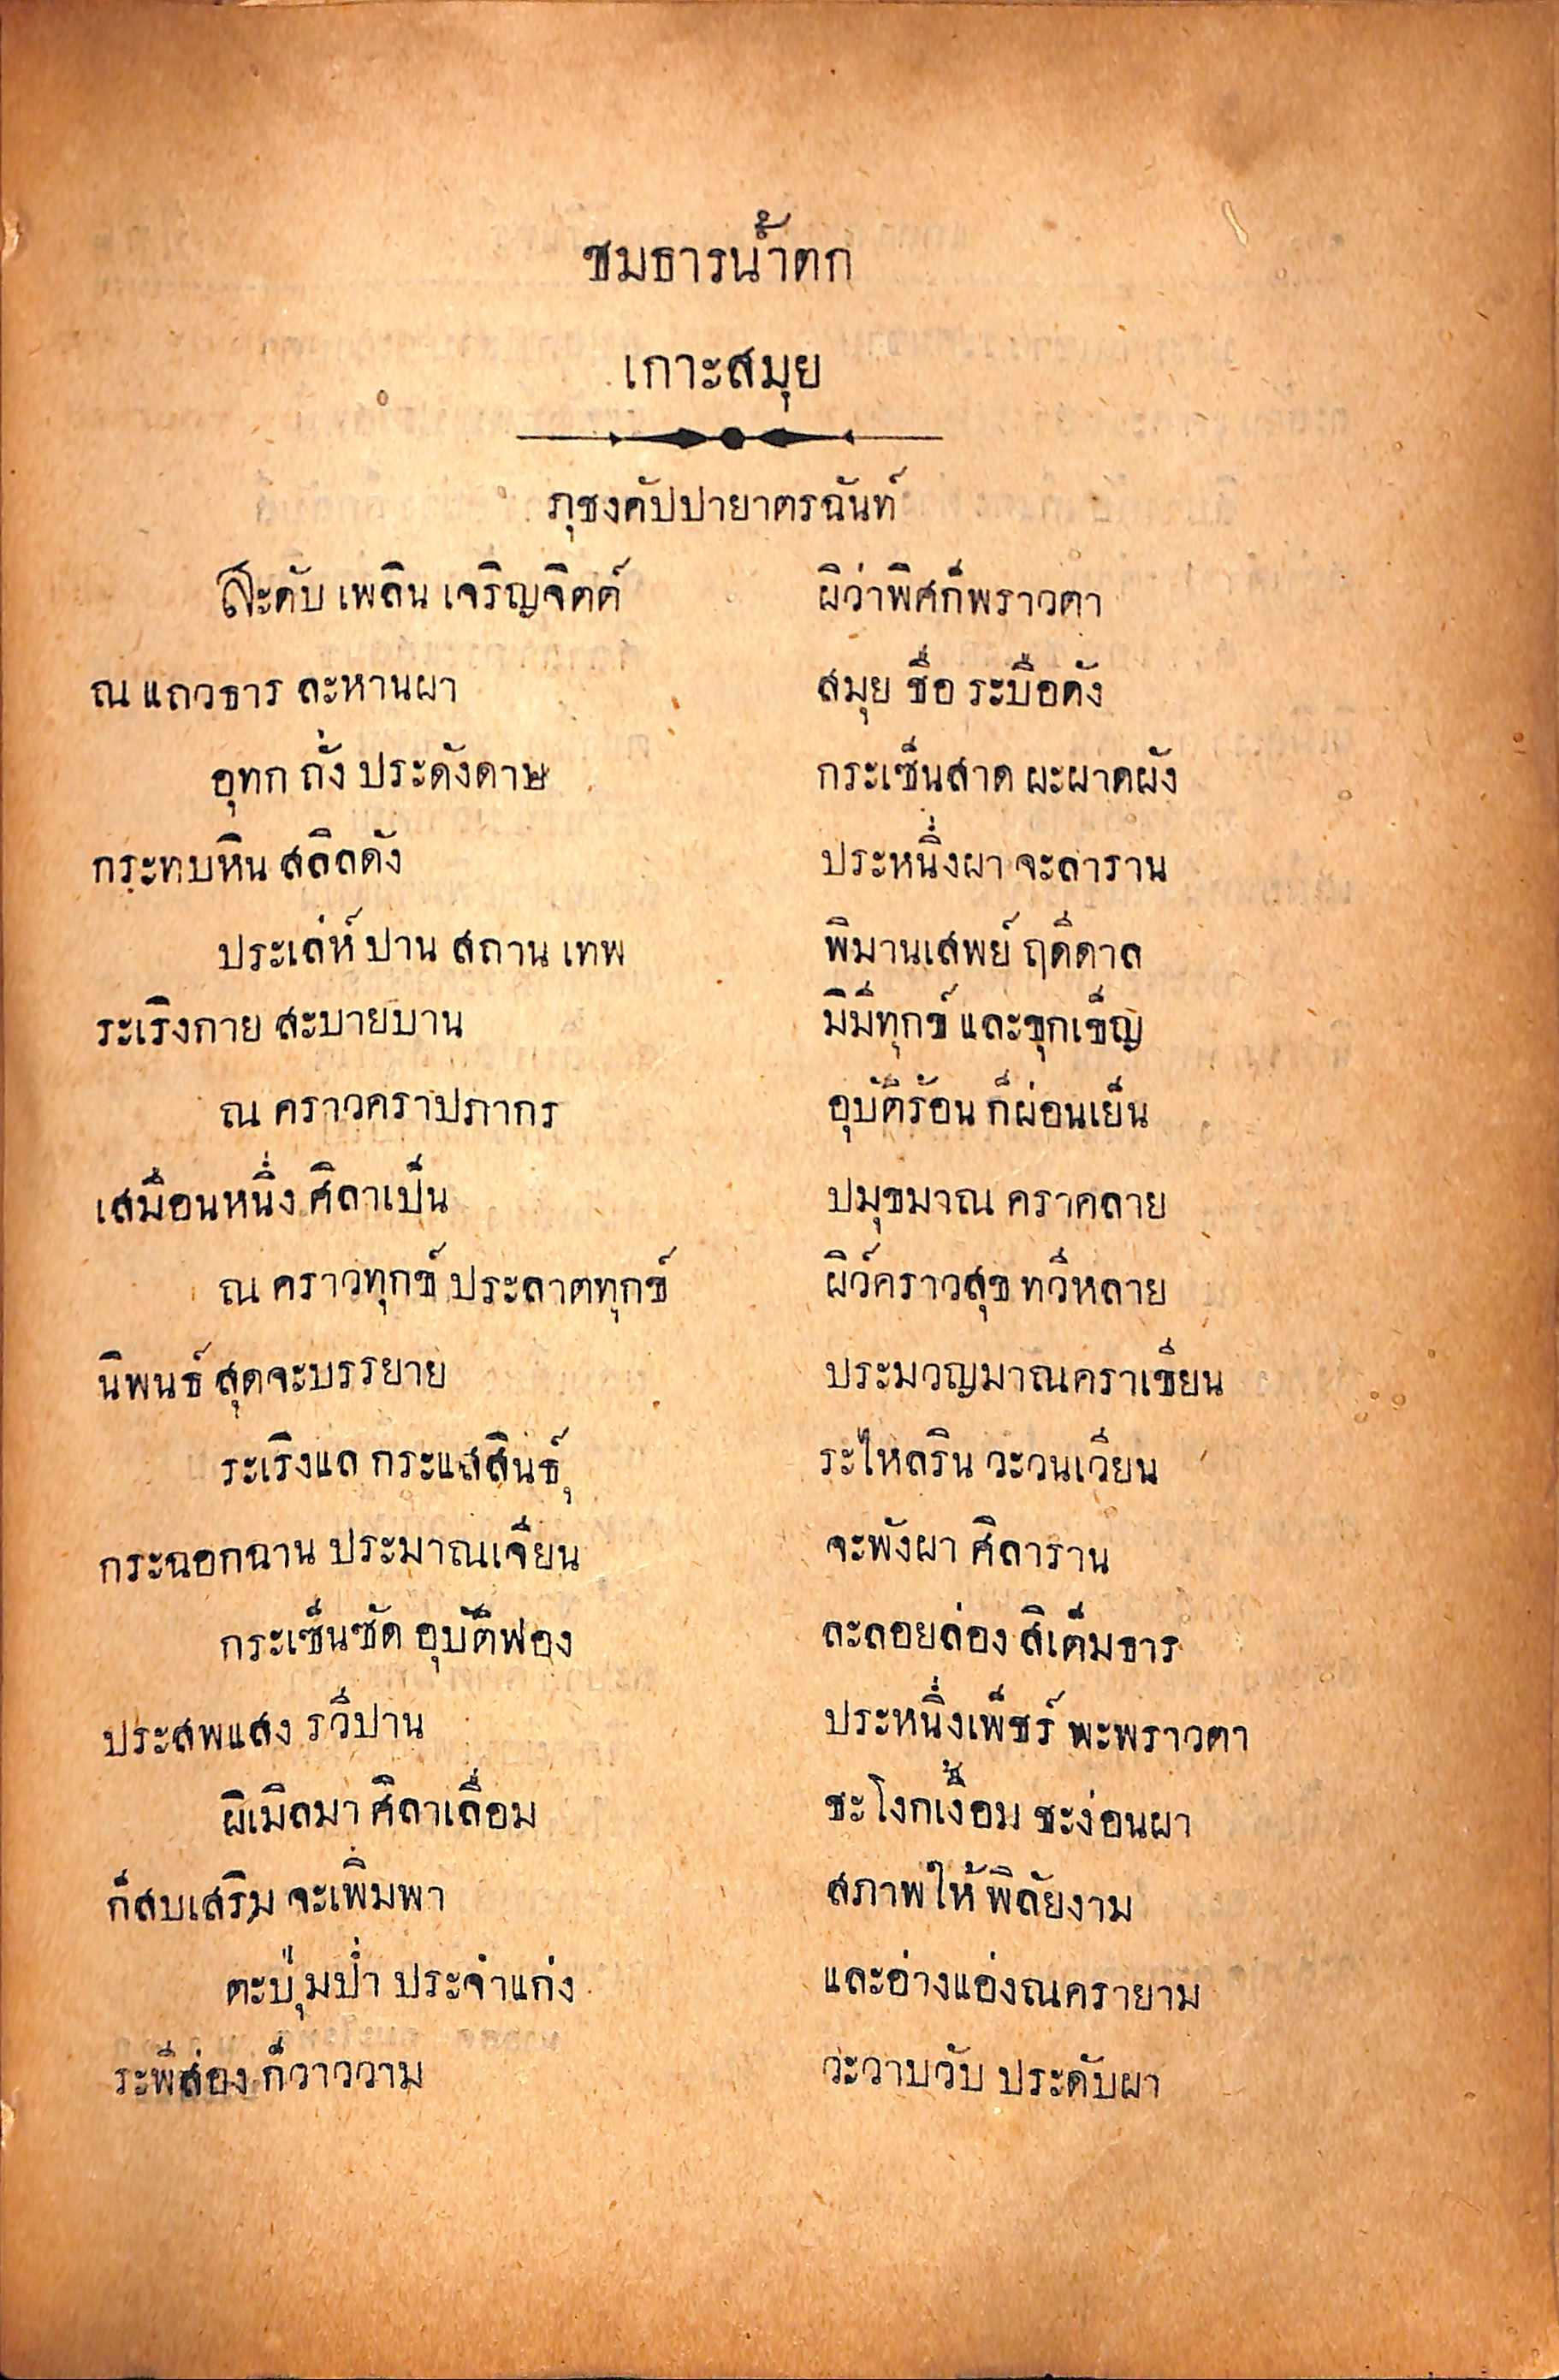 ชมธารน้ำตก
เกาะสมุย
ภุชงคัปปายาตรฉันท์
สะดับ เพลิน เจริญจิตต์ ผิว่าพิศก็พราวตา
ณ แถวธาร ละหานผา สมุย ชื่อ ระบือดัง
อุทก ถั่ง ประดังดาษ กระเซ็นสาด ผะผาดผัง
กระทบหิน สลิลดัง ประหนึ่งผา จะลาราน
ประเล่ห์ ปาน สถาน เทพ พิมานเสพย์ ฤดีดาล
ระเริงกาย สะบายบาน มิมีทุกข์ และขุกเข็ญ
ณ คราวคราปภากร อุบัติร้อน ก็ผ่อนเย็น
เสมือนหนึ่ง ศิลาเป็น ปมุขมาณ คราคลาย
ณ คราวทุกข์ ประลาตทุกข์ ผิว์คราวสุข ทวีหลาย
นิพนธ์ สุดจะบรรยาย ประมวญมาณคราเขียน
ระเริงแล กระแสสินธุ์ ระไหลริน วะวนเวียน
กระฉอกฉาน ประมาณเจียน จะพังผา ศิลาราน
กระเซ็นซัด อุบัติฟอง ละลอยล่อง สิเต็มธาร
ประสพแสง รวีปาน ประหนึ่งเพ็ชร์ พะพราวตา
ผิเมิลมา ศิลาเลื่อม ชะโงกเงื้อม ชะง่อนผา
ก็สบเสริม จะเพิ่มพา สภาพให้ พิลัยงาม
ตะปุ่มป่ำ ประจำแก่ง และอ่างแอ่งณครายาม
ระพีส่อง ก็วาววาม วะวาบวับ ประดับผา